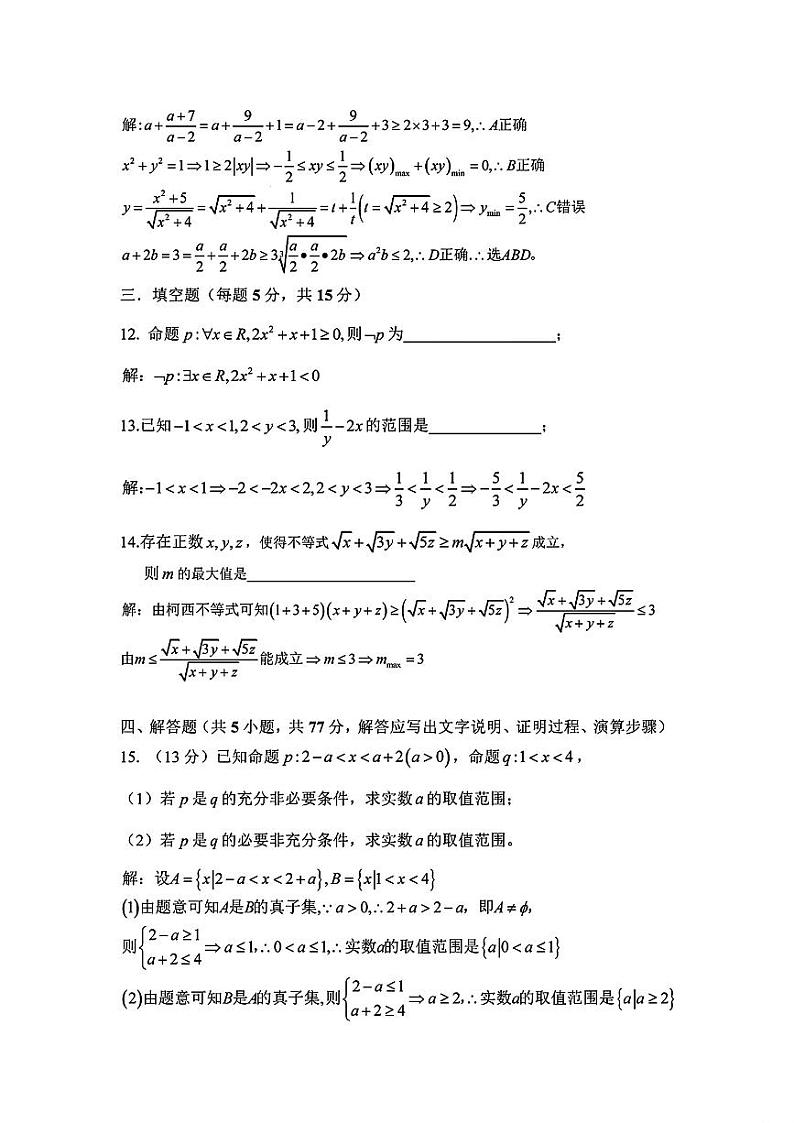 解:a+\frac{a+7}{a-2}=a+\frac{9}{a-2}+1=a-2+\frac{9}{a-2}+3≥2×3+3=9,∴A正确
x²+y²=1⇒1≥2|xy|⇒-\frac{1}{2}≤xy≤\frac{1}{2}⇒(xy)_{max}+(xy)_{min}=0,∴B正确
y=\frac{x²+5}{\sqrt{x²+4}}=\sqrt{x²+4}+\frac{1}{\sqrt{x²+4}}=t+\frac{1}{t}(t=\sqrt{x²+4}≥2)⇒y_{min}=\frac{5}{2},∴C错误
a+2b=3=\frac{a}{2}+\frac{a}{2}+2b≥3\sqrt[3]{\frac{a}{2}•\frac{a}{2}•2b}⇒a²b≤2,∴D正确∴选ABD。
三．填空题（每题 5 分，共 15 分）
12. 命题 p:∀x∈R,2x²+x+1≥0,则¬p 为____________________;
解：¬p:∃x∈R,2x²+x+1<0
13.已知 -1<x<1,2<y<3,则\frac{1}{y}-2x 的范围是_______________;
解:-1<x<1⇒-2<-2x<2,2<y<3⇒\frac{1}{3}<\frac{1}{y}<\frac{1}{2}⇒-\frac{5}{3}<\frac{1}{y}-2x<\frac{5}{2}
14.存在正数 x,y,z，使得不等式 \sqrt{x}+\sqrt{3y}+\sqrt{5z}≥m\sqrt{x+y+z} 成立，
则 m 的最大值是______________________
解：由柯西不等式可知(1+3+5)(x+y+z)≥(\sqrt{x}+\sqrt{3y}+\sqrt{5z})²⇒\frac{\sqrt{x}+\sqrt{3y}+\sqrt{5z}}{\sqrt{x+y+z}}≤3
由m≤\frac{\sqrt{x}+\sqrt{3y}+\sqrt{5z}}{\sqrt{x+y+z}}能成立⇒m≤3⇒m_{max}=3
四、解答题（共 5 小题，共 77 分，解答应写出文字说明、证明过程、演算步骤）
15. （13 分）已知命题 p:2-a<x<a+2(a>0)，命题 q:1<x<4，
（1）若 p 是 q 的充分非必要条件，求实数 a 的取值范围；
（2）若 p 是 q 的必要非充分条件，求实数 a 的取值范围。
解：设A={x|2-a<x<2+a},B={x|1<x<4}
(1)由题意可知A是B的真子集,∵a>0,∴2+a>2-a，即A≠ϕ，
则{2-a≥1 a+2≤4⇒a≤1,∴0<a≤1,∴实数a的取值范围是{a|0<a≤1}
(2)由题意可知B是A的真子集,则{2-a≤1 a+2≥4⇒a≥2,∴实数a的取值范围是{a|a≥2}